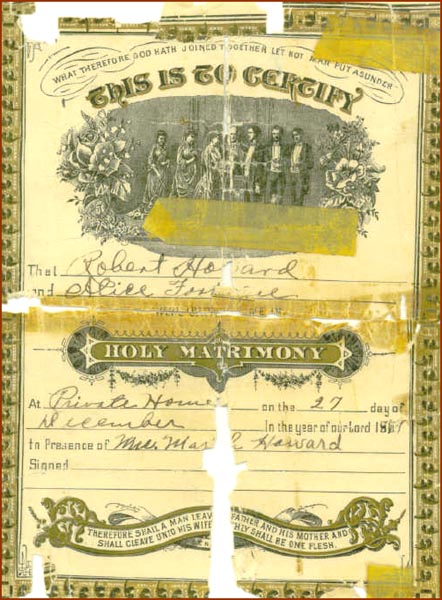 WHAT THEREFORE GOD HATH JOINED TOGETHER LET NOT MAN PUT ASUNDER
THIS IS TO CERTIFY
That Robert Howard
and Alice
HOLY MATRIMONY
At Private Home on the 27 day of
December In the year of our Lord
to Presence of Mrs. Howard
Signed
THEREFORE SHALL A MAN LEAVE FATHER AND HIS MOTHER AND
SHALL CLEAVE UNTO HIS WIFE HEY SHALL BE ONE FLESH.